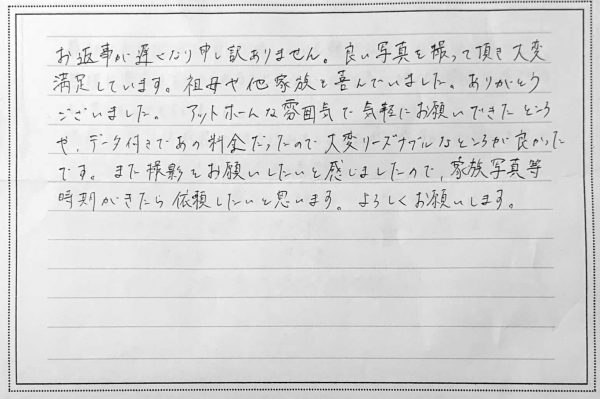 お返事が遅くなり申し訳ありません。良い写真を撮って頂き大変
満足しています。祖母や他家族も喜んでいました。ありがとう
ございました。アットホームな雰囲気で気軽にお願いできたところ
や、データ付きであの料金だったので大変リーズナブルなところが良かった
です。また撮影をお願いしたいと感じましたので、家族写真等
時期がきたら依頼したいと思います。よろしくお願いします。